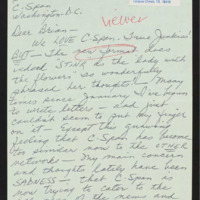 C-Span
Washington D.C.
never
Dear Brian -
We LOVE C-Span - True Junkies!
BUT - The new format does
indeed STINK, as the lady with
the flowers so wonderfully
phrased her thought - Many
times since January I've begun
to write letters - and just
couldn't seem to put my finger
on it - Except the gnawing
feeling that C-Span has become
too similar now to the OTHER
networks - My main concern
and thoughts lately have been
SADNESS - that C-Span is
now trying to cater to the
of the mems and